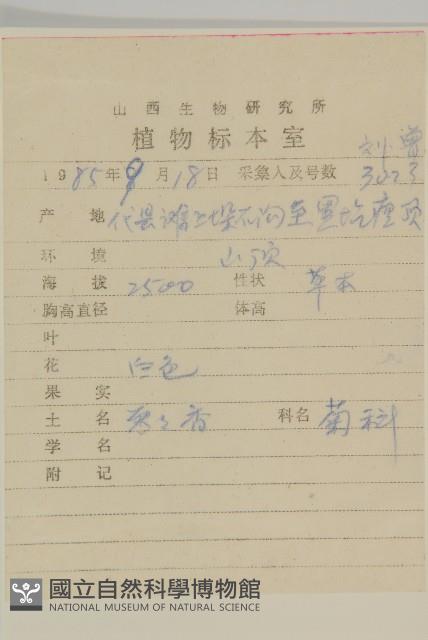 山西生物研究所
植物标本室
刘 曾
1985年9月18日 采集人及号数
产 地 代县
环 境 山顶
海 拔 2500 性状 草本
胸高直径 体高
叶
花 白色
果 实
土 名 香 科名 菊科
学 名
附 记
國立自然科學博物館
NATIONAL MUSEUM OF NATURAL SCIENCE